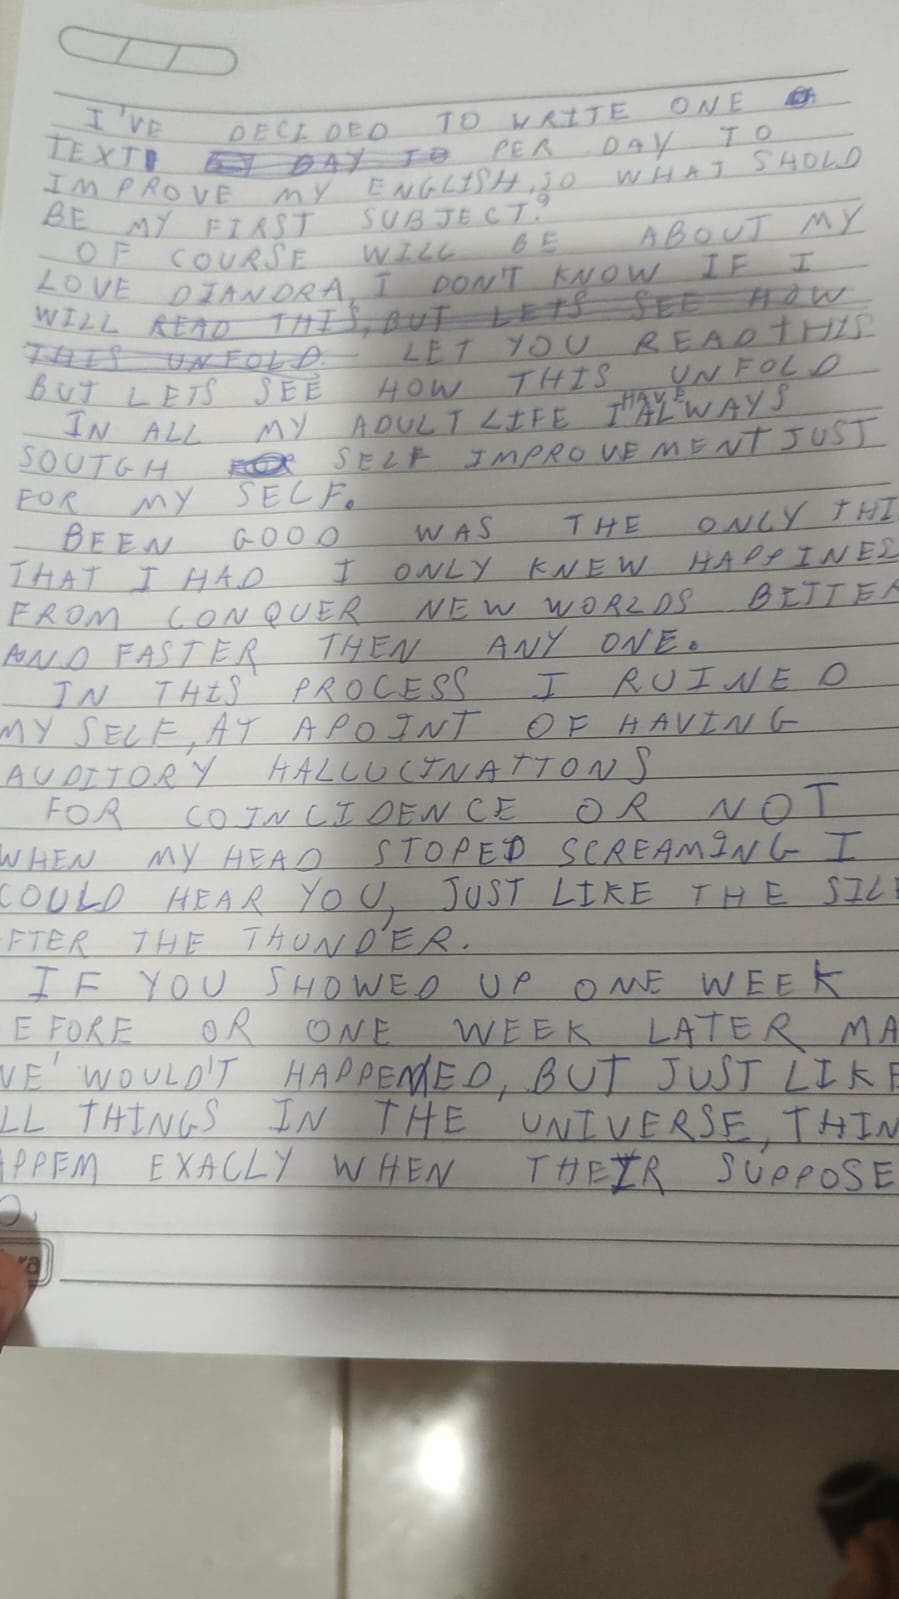 I'VE DECIDED TO WRITE ONE
TEXT DAY TO PER DAY TO
IMPROVE MY ENGLISH, SO WHAT SHOLD
BE MY FIRST SUBJECT?
OF COURSE WILL BE ABOUT MY
LOVE DIANDRA, I DON'T KNOW IF I
WILL READ THIS, BUT LETS SEE HOW
THIS UNFOLD LET YOU READ THIS
BUT LETS SEE HOW THIS UNFOLD
IN ALL MY ADULT LIFE I HAVE ALWAYS
SOUTGH SELF IMPROVEMENT JUST
FOR MY SELF.
BEEN GOOD WAS THE ONLY THI
THAT I HAD I ONLY KNEW HAPPINES
FROM CONQUER NEW WORLDS BETTER
AND FASTER THEN ANY ONE.
IN THIS PROCESS I RUINED
MY SELF, AT A POINT OF HAVING
AUDITORY HALLUCINATIONS
FOR COINCIDENCE OR NOT
WHEN MY HEAD STOPED SCREAMING I
COULD HEAR YOU, JUST LIKE THE SIL
FTER THE THUNDER.
IF YOU SHOWED UP ONE WEEK
EFORE OR ONE WEEK LATER MA
VE WOULD'T HAPPENED, BUT JUST LIKE
LL THINGS IN THE UNIVERSE, THIN
APPEM EXACLY WHEN THEIR SUPPOSE
O,
ra